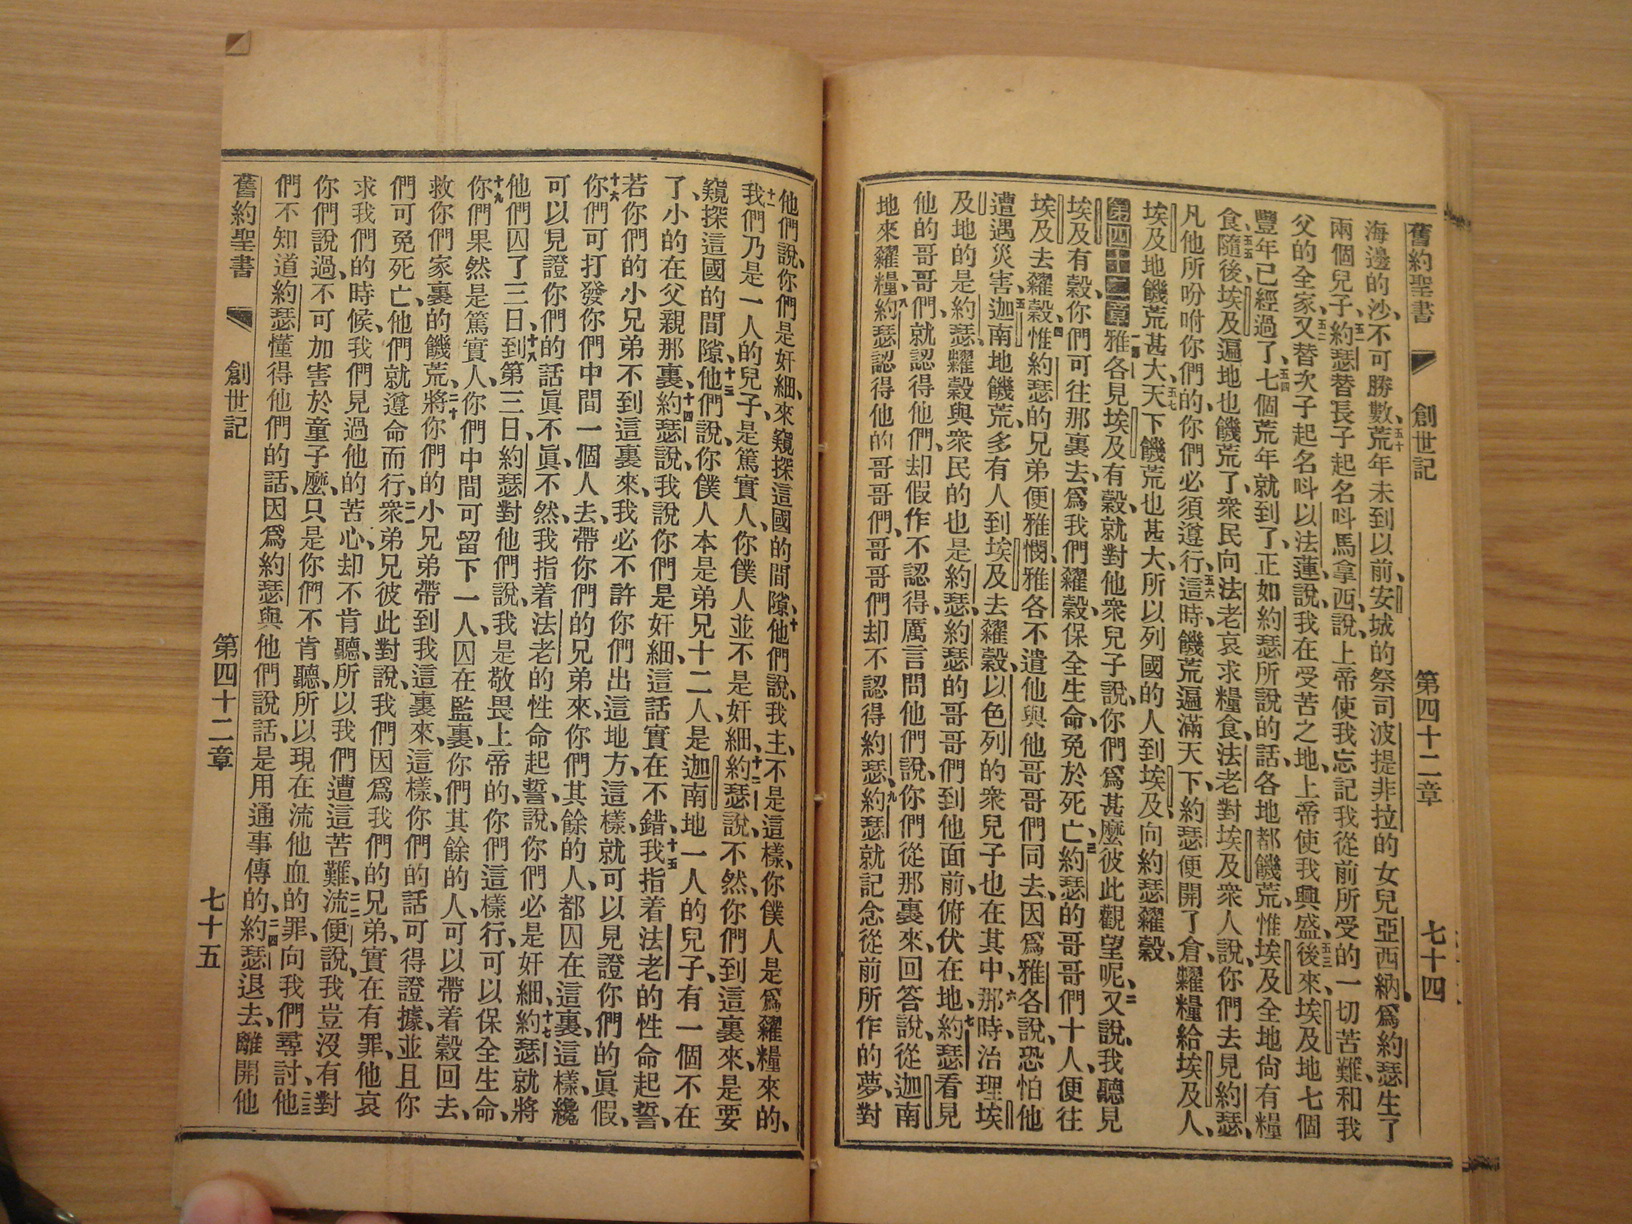 舊約聖書 創世記 第四十二章 七十四
海邊的沙、不可勝數、五十荒年未到以前、安城的祭司波提非拉的女兒亞西納、爲約瑟生了
兩個兒子、五一約瑟替長子起名呌馬拿西、說、上帝使我忘記我從前所受的一切苦難、和我
父的全家、五二又替次子起名呌以法蓮、說、我在受苦之地、上帝使我興盛、五三後來、埃及地七個
豐年已經過了、五四七個荒年就到了、正如約瑟所說的話、各地都饑荒、惟埃及全地尙有糧
食、五五隨後、埃及遍地也饑荒了、衆民向法老哀求糧食、法老對埃及衆人說、你們去見約瑟、
凡他所吩咐你們的、你們必須遵行、五六這時、饑荒遍滿天下、約瑟便開了倉、糶糧給埃及人、
埃及地饑荒甚大、五七天下饑荒也甚大、所以列國的人到埃及、向約瑟糴穀、
第四十二章 一雅各見埃及有穀、就對他衆兒子說、你們爲甚麼彼此觀望呢、二又說、我聽見
埃及有穀、你們可往那裏去、爲我們糴穀、保全生命、免於死亡、三約瑟的哥哥們十人、便往
埃及去糴穀、四惟約瑟的兄弟便雅憫、雅各不遣他與他哥哥們同去、因爲雅各說、恐怕他
遭遇災害、五迦南地饑荒、多有人到埃及去糴穀、以色列的衆兒子也在其中、六那時、治理埃
及地的是約瑟、糶穀與衆民的也是約瑟、約瑟的哥哥們到他面前、俯伏在地、七約瑟看見
他的哥哥們、就認得他們、却假作不認得、厲言問他們說、你們從那裏來、回答說、從迦南
地來糴糧、八約瑟認得他的哥哥們、哥哥們却不認得約瑟、九約瑟就記念從前所作的夢、對
他們說、你們是奸細、來窺探這國的間隙、十他們說、我主、不是這樣、你僕人是爲糴糧來的、
十一我們乃是一人的兒子、是篤實人、你僕人並不是奸細、十二約瑟說、不然、你們到這裏來、是要
窺探這國的間隙、十三他們說、你僕人本是弟兄十二人、是迦南地一人的兒子、有一個不在
了、小的在父親那裏、十四約瑟說、我說你們是奸細、這話實在不錯、十五我指着法老的性命起誓、
若你們的小兄弟不到這裏來、我必不許你們出這地方、這樣、就可以見證你們的眞假、
十六你們可打發你們中間一個人去、帶你們的兄弟來、你們其餘的人、都囚在這裏、這樣、纔
可以見證你們的話眞不眞、不然、我指着法老的性命起誓、說、你們必是奸細、十七約瑟就將
他們囚了三日、十八到第三日、約瑟對他們說、我是敬畏上帝的、你們這樣行、可以保全生命、
十九你們果然是篤實人、你們中間可留下一人、囚在監裏、你們其餘的人、可以帶着穀回去、
救你們家裏的饑荒、二十將你們的小兄弟帶到我這裏來、這樣、你們的話可得證據、並且你
們可免死亡、他們就遵命而行、二一衆弟兄彼此對說、我們因爲我們的兄弟、實在有罪、他哀
求我們的時候、我們見過他的苦心、却不肯聽、所以我們遭這苦難、二二流便說、我豈沒有對
你們說過、不可加害於童子麼、只是你們不肯聽、所以現在流他血的罪、向我們尋討、二三他
們不知道約瑟懂得他們的話、因爲約瑟與他們說話、是用通事傳的、二四約瑟退去、離開他
舊約聖書 創世記 第四十二章 七十五